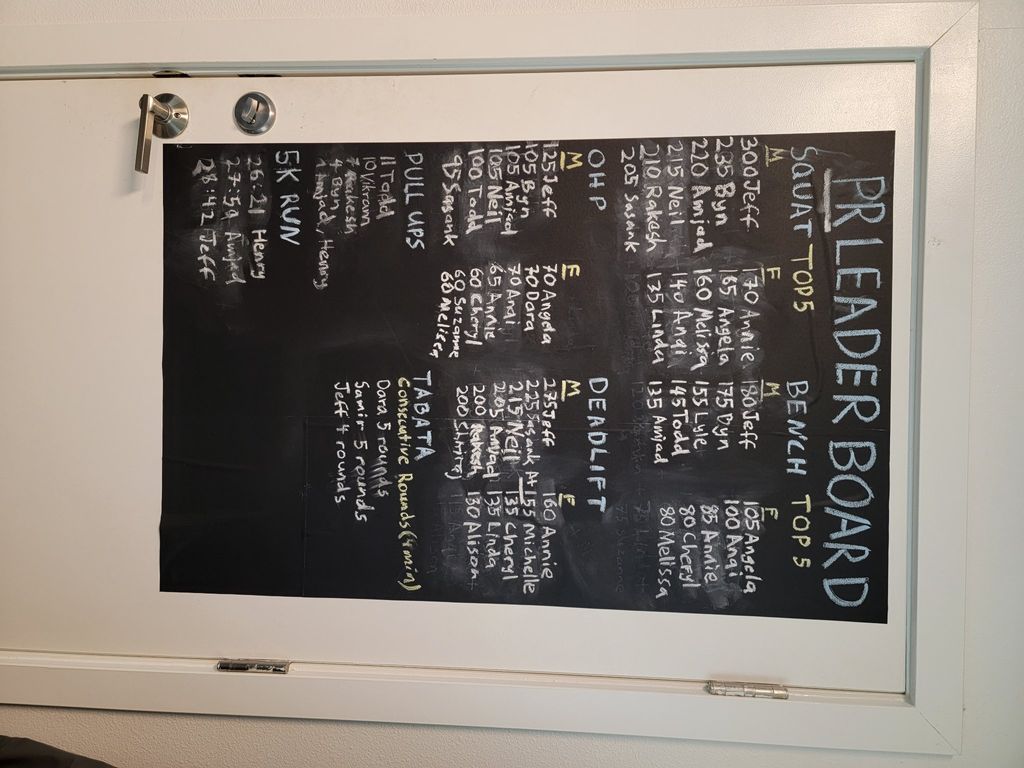 PR LEADER BOARD
SQUAT TOP 5
M F
300 Jeff 170 Annie
235 Byn 165 Angela
220 Amjad 160 Melissa
215 Neil 140 Anqi
210 Rakesh 135 Linda
205 Sasank
BENCH TOP 5
M F
180 Jeff 105 Angela
175 Byn 100 Anqi
155 Lyle 85 Annie
145 Todd 80 Cheryl
135 Amjad 80 Melissa
OHP
M F
125 Jeff 70 Angela
105 Byn 70 Dara
105 Amjad 70 Anqi
105 Neil 65 Annie
100 Todd 60 Cheryl
95 Sasank 60 Suzanne
60 Melissa
DEADLIFT
M F
275 Jeff 160 Annie
225 Sasank 155 Michelle
215 Neil 135 Cheryl
205 Amjad 135 Linda
200 130 Alison
200
PULL UPS
11 Todd
10 Vikram
7 Rakesh
4 Byn
Amjad, Henry
TABATA
Consecutive Rounds (4min)
Dara 5 rounds
Samir 5 rounds
Jeff 4 rounds
5K RUN
26:21 Henry
27:59 Amjad
28:42 Jeff